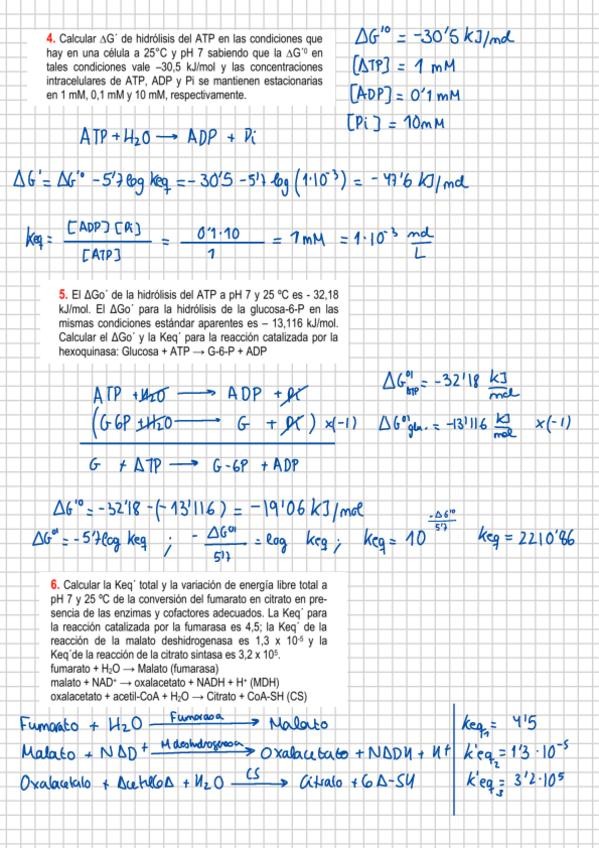 4. Calcular ΔG´ de hidrólisis del ATP en las condiciones que
hay en una célula a 25°C y pH 7 sabiendo que la ΔG´⁰ en
tales condiciones vale –30,5 kJ/mol y las concentraciones
intracelulares de ATP, ADP y Pi se mantienen estacionarias
en 1 mM, 0,1 mM y 10 mM, respectivamente.
ΔG'° = -30'5 kJ/mol
[ATP] = 1 mM
[ADP] = 0'1 mM
[Pi] = 10mM
ATP + H₂O → ADP + Pi
ΔG' = ΔG'° - 5'7 log Keq = -30'5 - 5'7 log (1·10⁻³) = -47'6 kJ/mol
Keq = [ADP] [Pi] / [ATP] = 0'1·10 / 1 = 1 mM = 1·10⁻³ mol/L
5. El ΔGo´ de la hidrólisis del ATP a pH 7 y 25 ºC es - 32,18
kJ/mol. El ΔGo´ para la hidrólisis de la glucosa-6-P en las
mismas condiciones estándar aparentes es – 13,116 kJ/mol.
Calcular el ΔGo´ y la Keq´ para la reacción catalizada por la
hexoquinasa: Glucosa + ATP → G-6-P + ADP
ATP + H₂O → ADP + Pi
ΔG°' ATP = -32'18 kJ/mol
(G6P + H₂O → G + Pi) x(-1)
ΔG°' glu. = -13'116 kJ/mol x(-1)
G + ATP → G-6P + ADP
ΔG'° = -32'18 - (-13'116) = -19'06 kJ/mol
ΔG°' = -5'7 log Keq ; - ΔG°'/5'7 = log Keq ; Keq = 10^(-ΔG'°/5'7) Keq = 2210'86
6. Calcular la Keq´ total y la variación de energía libre total a
pH 7 y 25 ºC de la conversión del fumarato en citrato en pre-
sencia de las enzimas y cofactores adecuados. La Keq´ para
la reacción catalizada por la fumarasa es 4,5; la Keq´ de la
reacción de la malato deshidrogenasa es 1,3 x 10⁻⁵ y la
Keq´de la reacción de la citrato sintasa es 3,2 x 10⁵.
fumarato + H₂O → Malato (fumarasa)
malato + NAD⁺ → oxalacetato + NADH + H⁺ (MDH)
oxalacetato + acetil-CoA + H₂O → Citrato + CoA-SH (CS)
Fumarato + H₂O Fumarasa → Malato
Keq₁ = 4'5
Malato + NAD⁺ M deshidrogenasa → Oxalacetato + NADH + H⁺
K'eq₂ = 1'3·10⁻⁵
Oxalacetato + AcetilCoA + H₂O CS → Citrato + CoA-SH
K'eq₃ = 3'2·10⁵